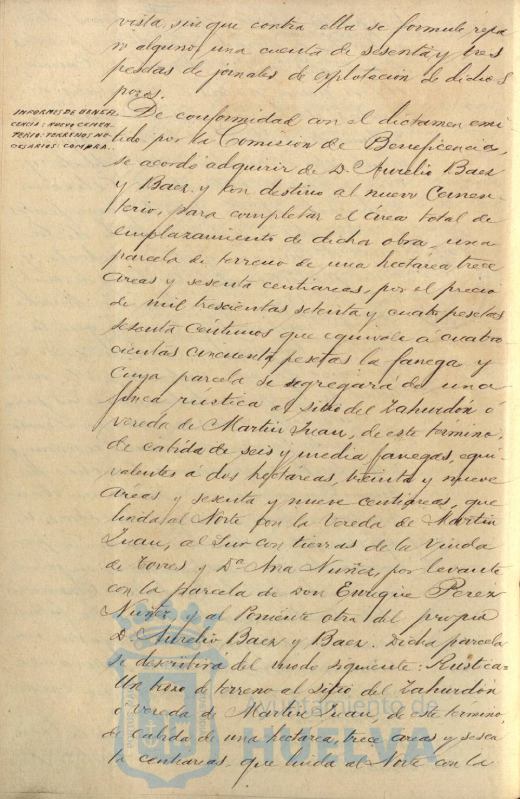 vista, sin que contra ella se formule repa
ro alguno, una cuenta de sesenta y tres
pesetas de jornales de explotacion de dichos
pozos.
INFORMES DE BENEFI
CENCIA: NUEVO CEMEN
TERIO: TERRENOS NE
CESARIOS: COMPRA.
De conformidad con el dictamen emi
tido por la Comision de Beneficencia,
se acordó adquirir de D. Aurelio Baez
y Baez y con destino al nuevo Cemen
terio, para completar el área total de
emplazamiento de dicha obra, una
parcela de terreno de una hectárea trece
áreas y sesenta centiareas, por el precio
de mil trescientas setenta y cuatro pesetas
sesenta céntimos que equivale á cuatro
cientas cincuenta pesetas la fanega y
cuya parcela se segregará de una
finca rustica al sitio del Zahurdón ó
vereda de Martin Juan, de este termino,
de cabida de seis y media fanegas, equi
valentes á dos hectáreas, treinta y nueve
áreas y sesenta y nueve centiareas, que
linda al Norte con la Vereda de Martin
Juan, al Sur con tierras de la Viuda
de Torres y Dª Ana Nuñez, por levante
con la parcela de Don Enrique Perez
Nuñez y al Poniente otra del propio
D. Aurelio Baez y Baez. Dicha parcela
se describirá del modo siguiente: Rustica=
Un trozo de terreno al sitio del Zahurdón
ó Vereda de Martin Juan, de este término,
de cabida de una hectárea, trece areas y sesen
ta centiareas, que linda al Norte con la
Ayuntamiento de
HUELVA